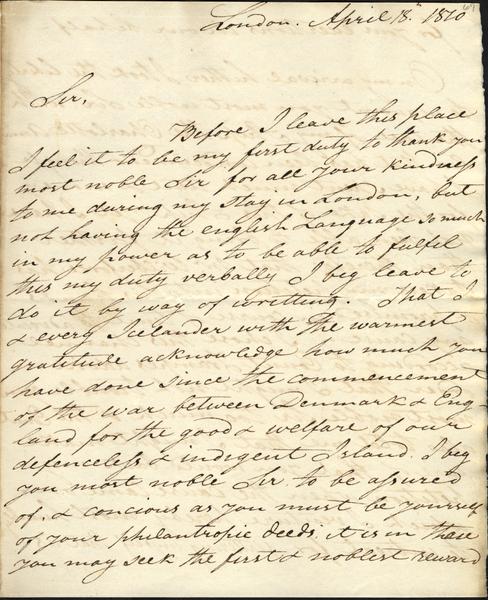 London. April 18th 1810
Sir,
Before I leave this place
I feel it to be my first duty to thank you
most noble Sir for all your kindness
to me during my stay in London, but
not having the english Language so much
in my power as to be able to fulfil
this my duty verbally I beg leave to
do it by way of writting. That I
& every Icelander with the warmest
gratitude acknowledge how much you
have done since the commencement
of the war between Denmark & Eng-
land for the good & welfare of our
defenceless & indigent Island. I beg
you most noble Sir to be assured
of, & concious as you must be yourself
of your philantropic deeds, it is in these
you may seek the first & noblest reward